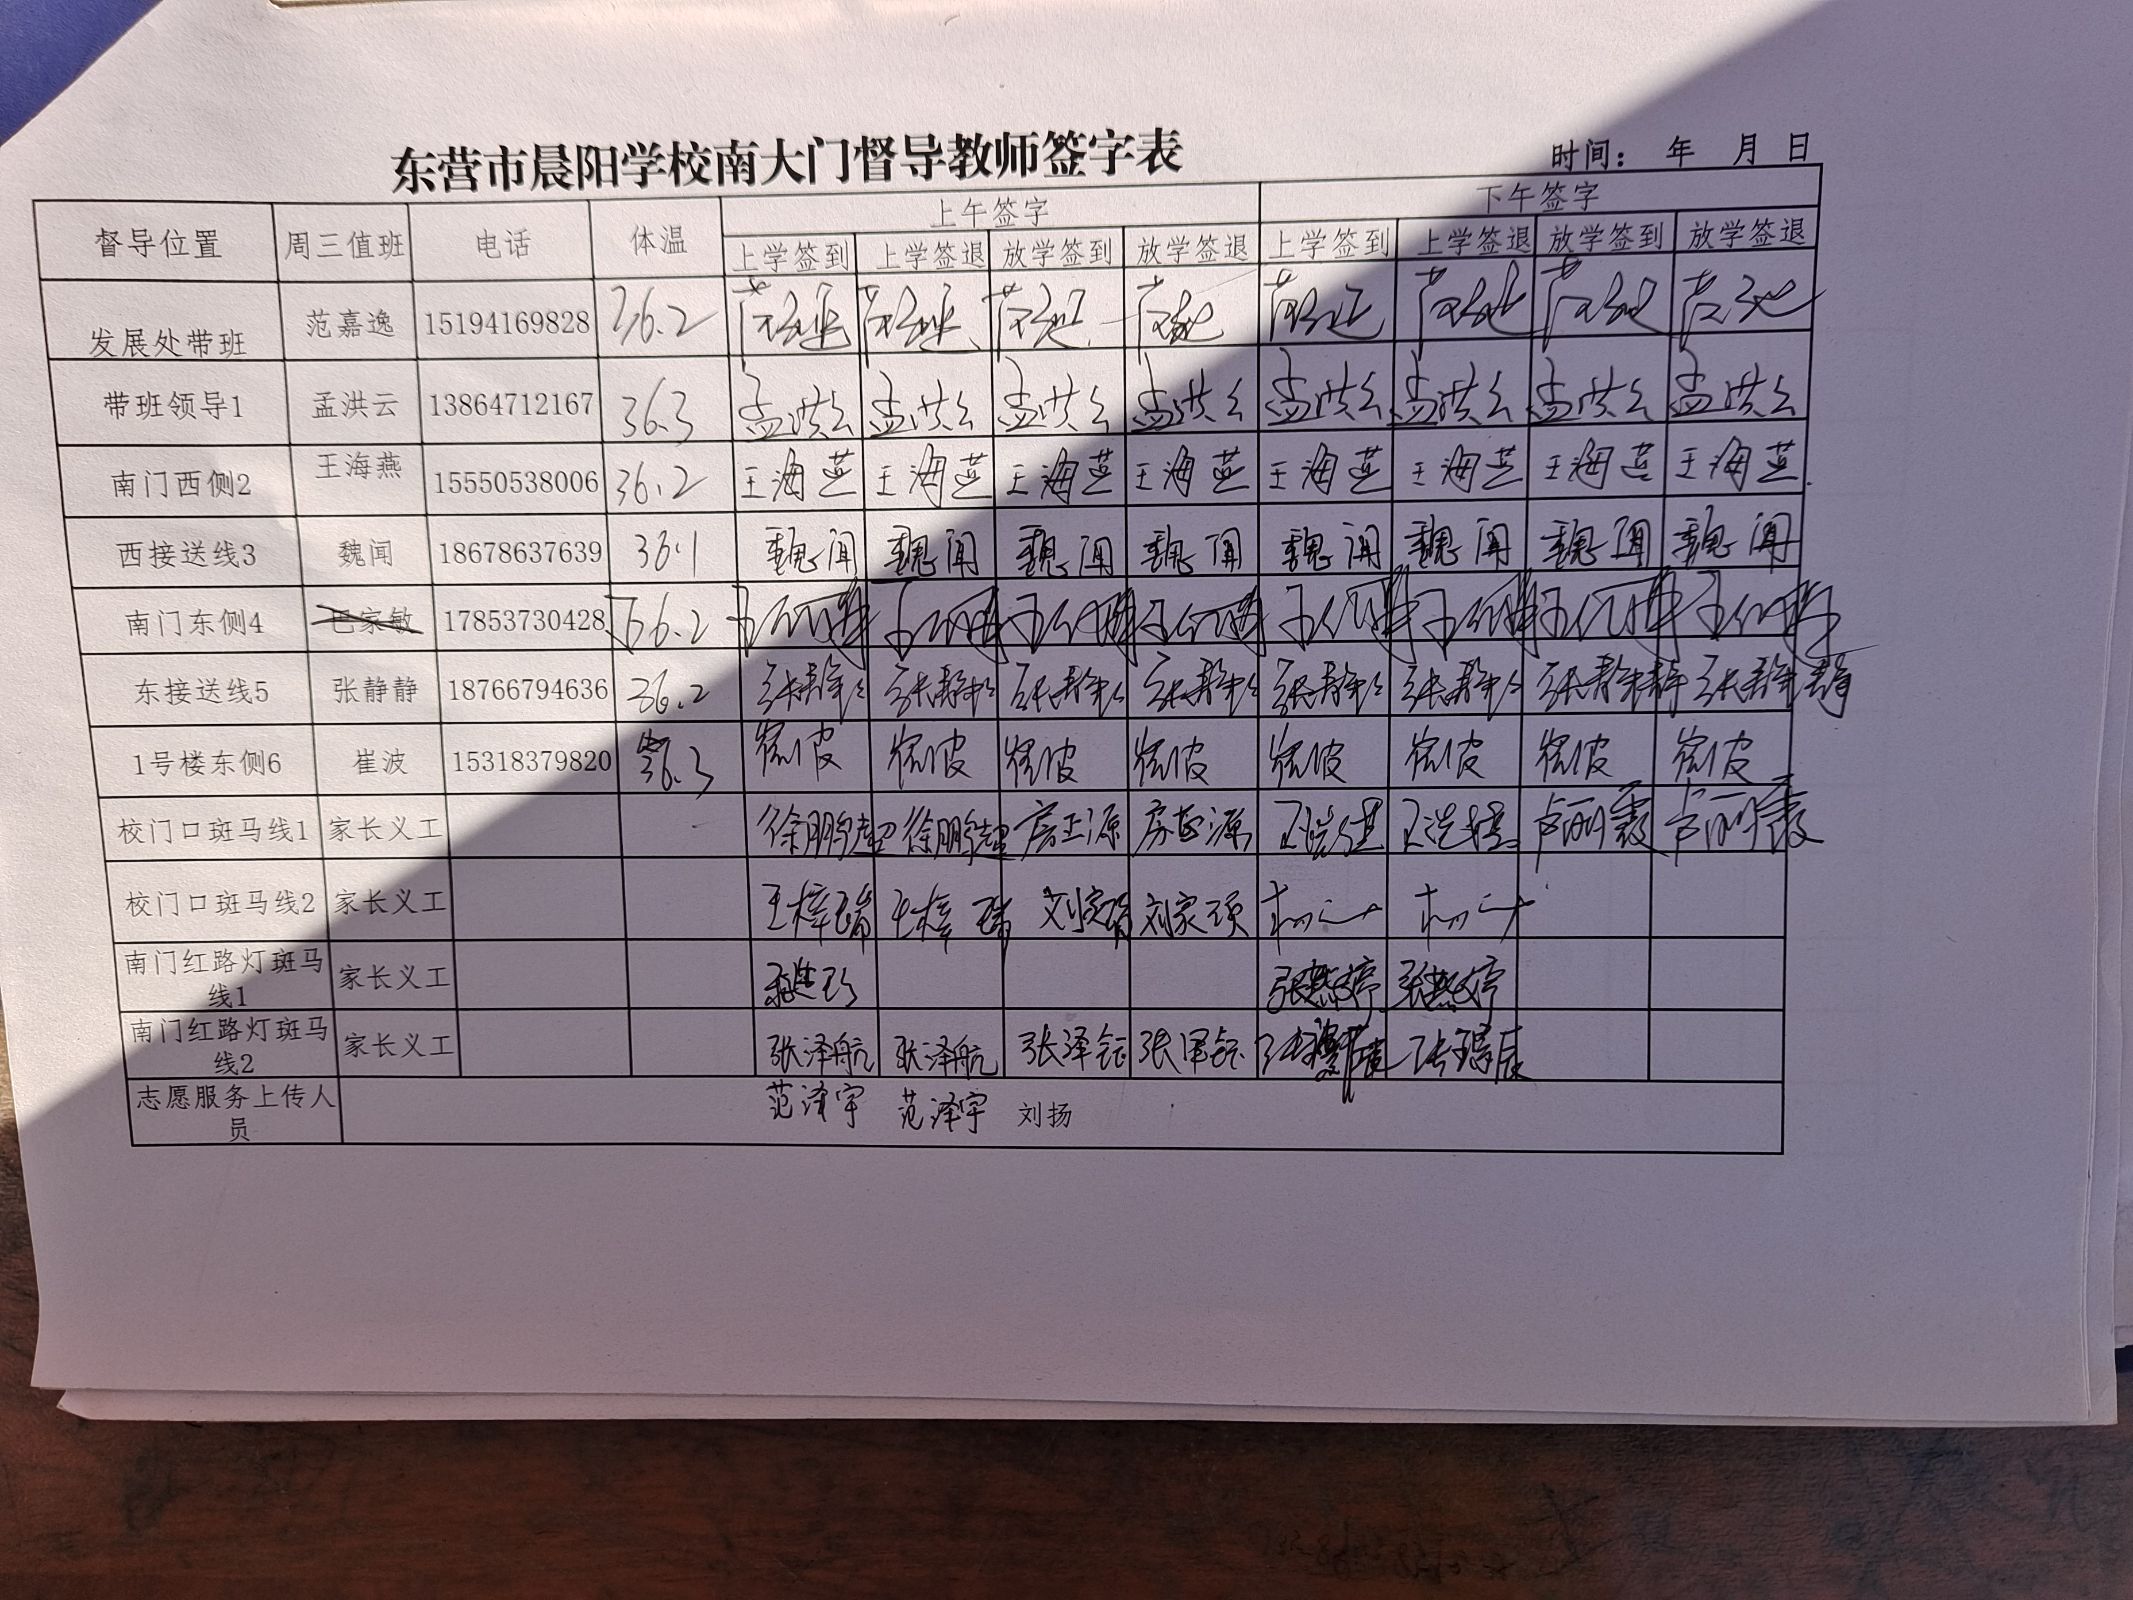 东营市晨阳学校南大门督导教师签字表
时间： 年 月 日
督导位置 周三值班 电话 体温 上午签字 下午签字
上学签到 上学签退 放学签到 放学签退 上学签到 上学签退 放学签到 放学签退
发展处带班 范嘉逸 15194169828 36.2
带班领导1 孟洪云 13864712167 36.3 孟洪云 孟洪云 孟洪云 孟洪云 孟洪云 孟洪云 孟洪云 孟洪云
南门西侧2 王海燕 15550538006 36.2 王海燕 王海燕 王海燕 王海燕 王海燕 王海燕 王海燕 王海燕
西接送线3 魏闻 18678637639 36.1 魏闻 魏闻 魏闻 魏闻 魏闻 魏闻 魏闻 魏闻
南门东侧4 巴家敏 17853730428 36.2
东接送线5 张静静 18766794636 36.2 张静静 张静静 张静静 张静静 张静静 张静静 张静静 张静静
1号楼东侧6 崔波 15318379820 36.3 崔波 崔波 崔波 崔波 崔波 崔波 崔波 崔波
校门口斑马线1 家长义工 徐鹏超 徐鹏超 房正源 房正源 卢丽霞 卢丽霞
校门口斑马线2 家长义工 王梓瑞 王梓瑞 刘家硕 刘家硕
南门红路灯斑马
线1 家长义工 张燕婷 张燕婷
南门红路灯斑马
线2 家长义工 张泽航 张泽航 张泽钰 张泽钰
志愿服务上传人
员 范泽宇 范泽宇 刘扬